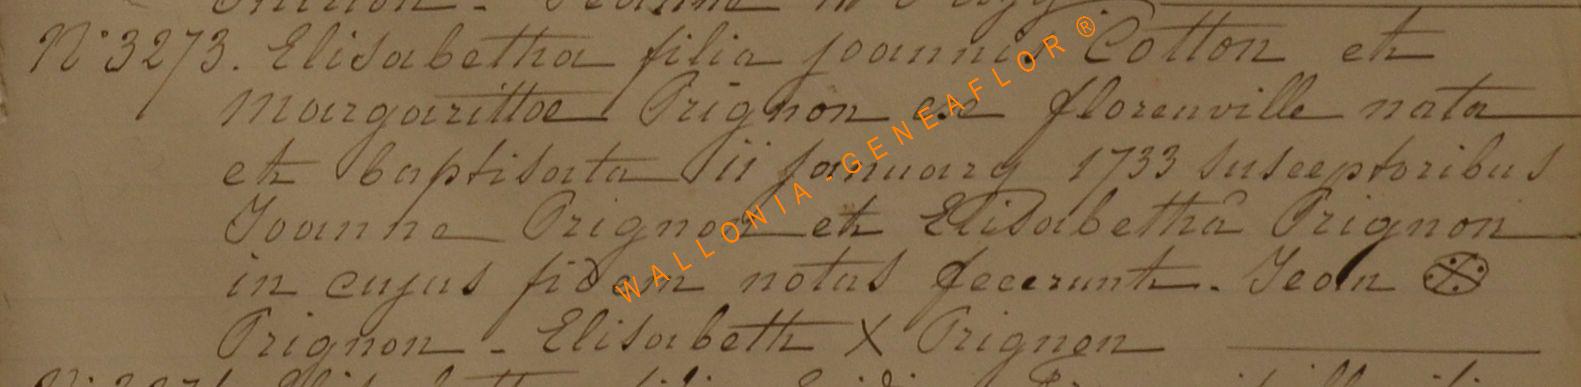 N° 3273. Elisabetha filia joannis Cotton et
margarittae Prignon ex florenville nata
et baptisata ii january 1733 susceptoribus
Joanne Prignon et Elisabethâ Prignon
in cujus fidem notas fecerunt. Jean
Prignon - Elisabeth X Prignon
WALLONIA-GENEAFLOR®